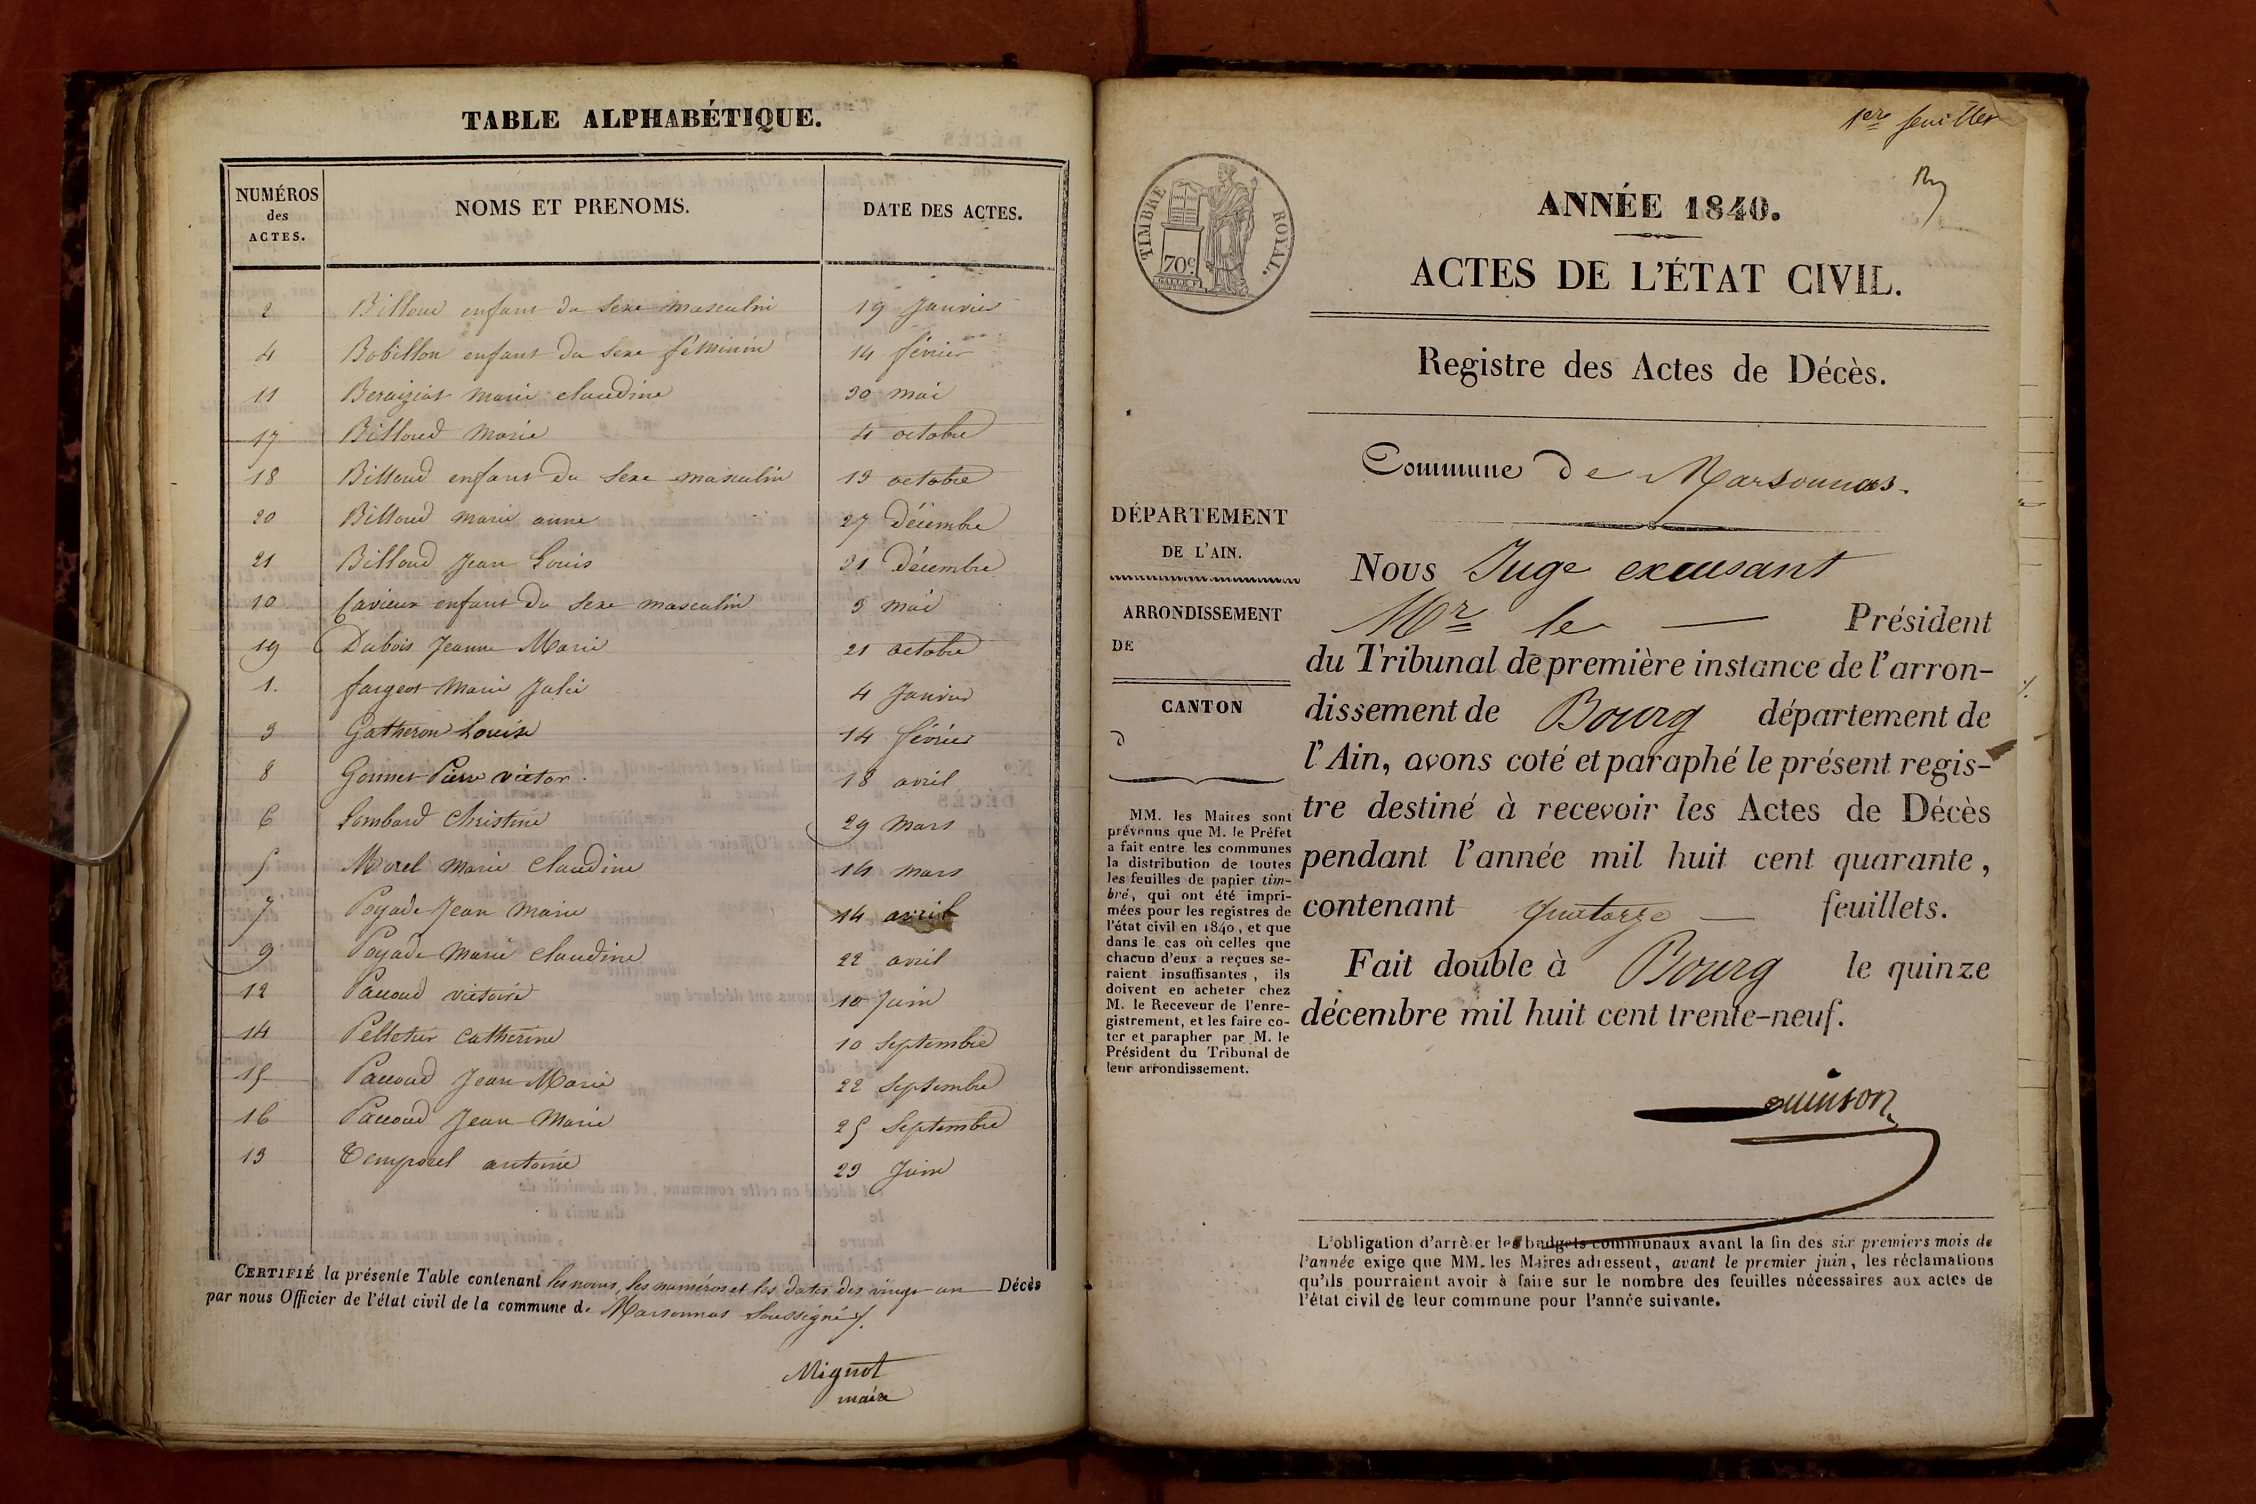 TABLE ALPHABÉTIQUE.
NUMÉROS des ACTES. NOMS ET PRENOMS. DATE DES ACTES.
2 Billoud enfant du sexe masculin 19 Janvier
4 Bobillon enfant du sexe féminin 14 février
11 marie claudine 30 mai
17 Billoud Marie 4 octobre
18 Billoud enfant du sexe masculin 13 octobre
20 Billoud marie anne 27 Décembre
21 Billoud Jean Louis 21 Décembre
10 enfant du sexe masculin 3 mai
19 Dubois Jeanne Marie 21 octobre
1. fargeot Marie Julie 4 Janvier
3 Gatheron Louise 14 février
8 Gonnet Pierre victor. 18 avril
6 Lombard Christine 29 mars
5 Morel marie claudine 14 mars
7 Poyade Jean Marie 14 avril
9 Poyade Marie claudine 22 avril
12 Paccoud victoire 10 Juin
14 Pelletier catherine 10 Septembre
15 Paccoud Jean Marie 22 Septembre
16 Paccoud Jean Marie 25 Septembre
13 Temporel antoine 23 Juin
CERTIFIÉ la présente Table contenant les noms, les numéros et les dates des vingt un Décès
par nous Officier de l'état civil de la commune de Marsonnas Soussigné
Mignot
maire
1ere feuillet
TIMBRE ROYAL.
70c
ANNÉE 1840.
ACTES DE L'ÉTAT CIVIL.
Registre des Actes de Décès.
Commune de Marsonnas.
DÉPARTEMENT
DE L'AIN.
ARRONDISSEMENT
DE
CANTON
D
MM. les Maires sont
prévenus que M. le Préfet
a fait entre les communes
la distribution de toutes
les feuilles de papier tim-
bré, qui ont été impri-
mées pour les registres de
l'état civil en 1840, et que
dans le cas où celles que
chacun d'eux a reçues se-
raient insuffisantes, ils
doivent en acheter chez
M. le Receveur de l'enre-
gistrement, et les faire co-
ter et parapher par M. le
Président du Tribunal de
leur arrondissement.
Nous Juge excusant
Mr le Président
du Tribunal de première instance de l'arron-
dissement de Bourg département de
l'Ain, avons coté et paraphé le présent regis-
tre destiné à recevoir les Actes de Décès
pendant l'année mil huit cent quarante,
contenant quatorze feuillets.
Fait double à Bourg le quinze
décembre mil huit cent trente-neuf.
L'obligation d'arrêter les budgets communaux avant la fin des six premiers mois de
l'année exige que MM. les Maires adressent, avant le premier juin, les réclamations
qu'ils pourraient avoir à faire sur le nombre des feuilles nécessaires aux actes de
l'état civil de leur commune pour l'année suivante.